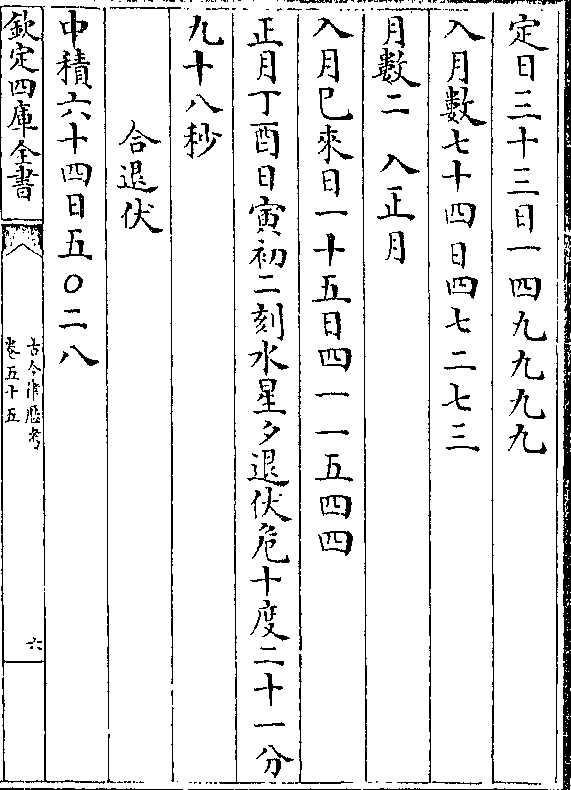 定日三十三日一四九九九九
入月數七十四日四七二七三
月數二　入正月
入月已來日一十五日四一一五四四
正月丁酉日寅初二刻水星夕退伏危十度二十一分
九十八秒
合退伏
中積六十四日五〇二八
欽定四庫全書
古今律歷考
卷五十五
六